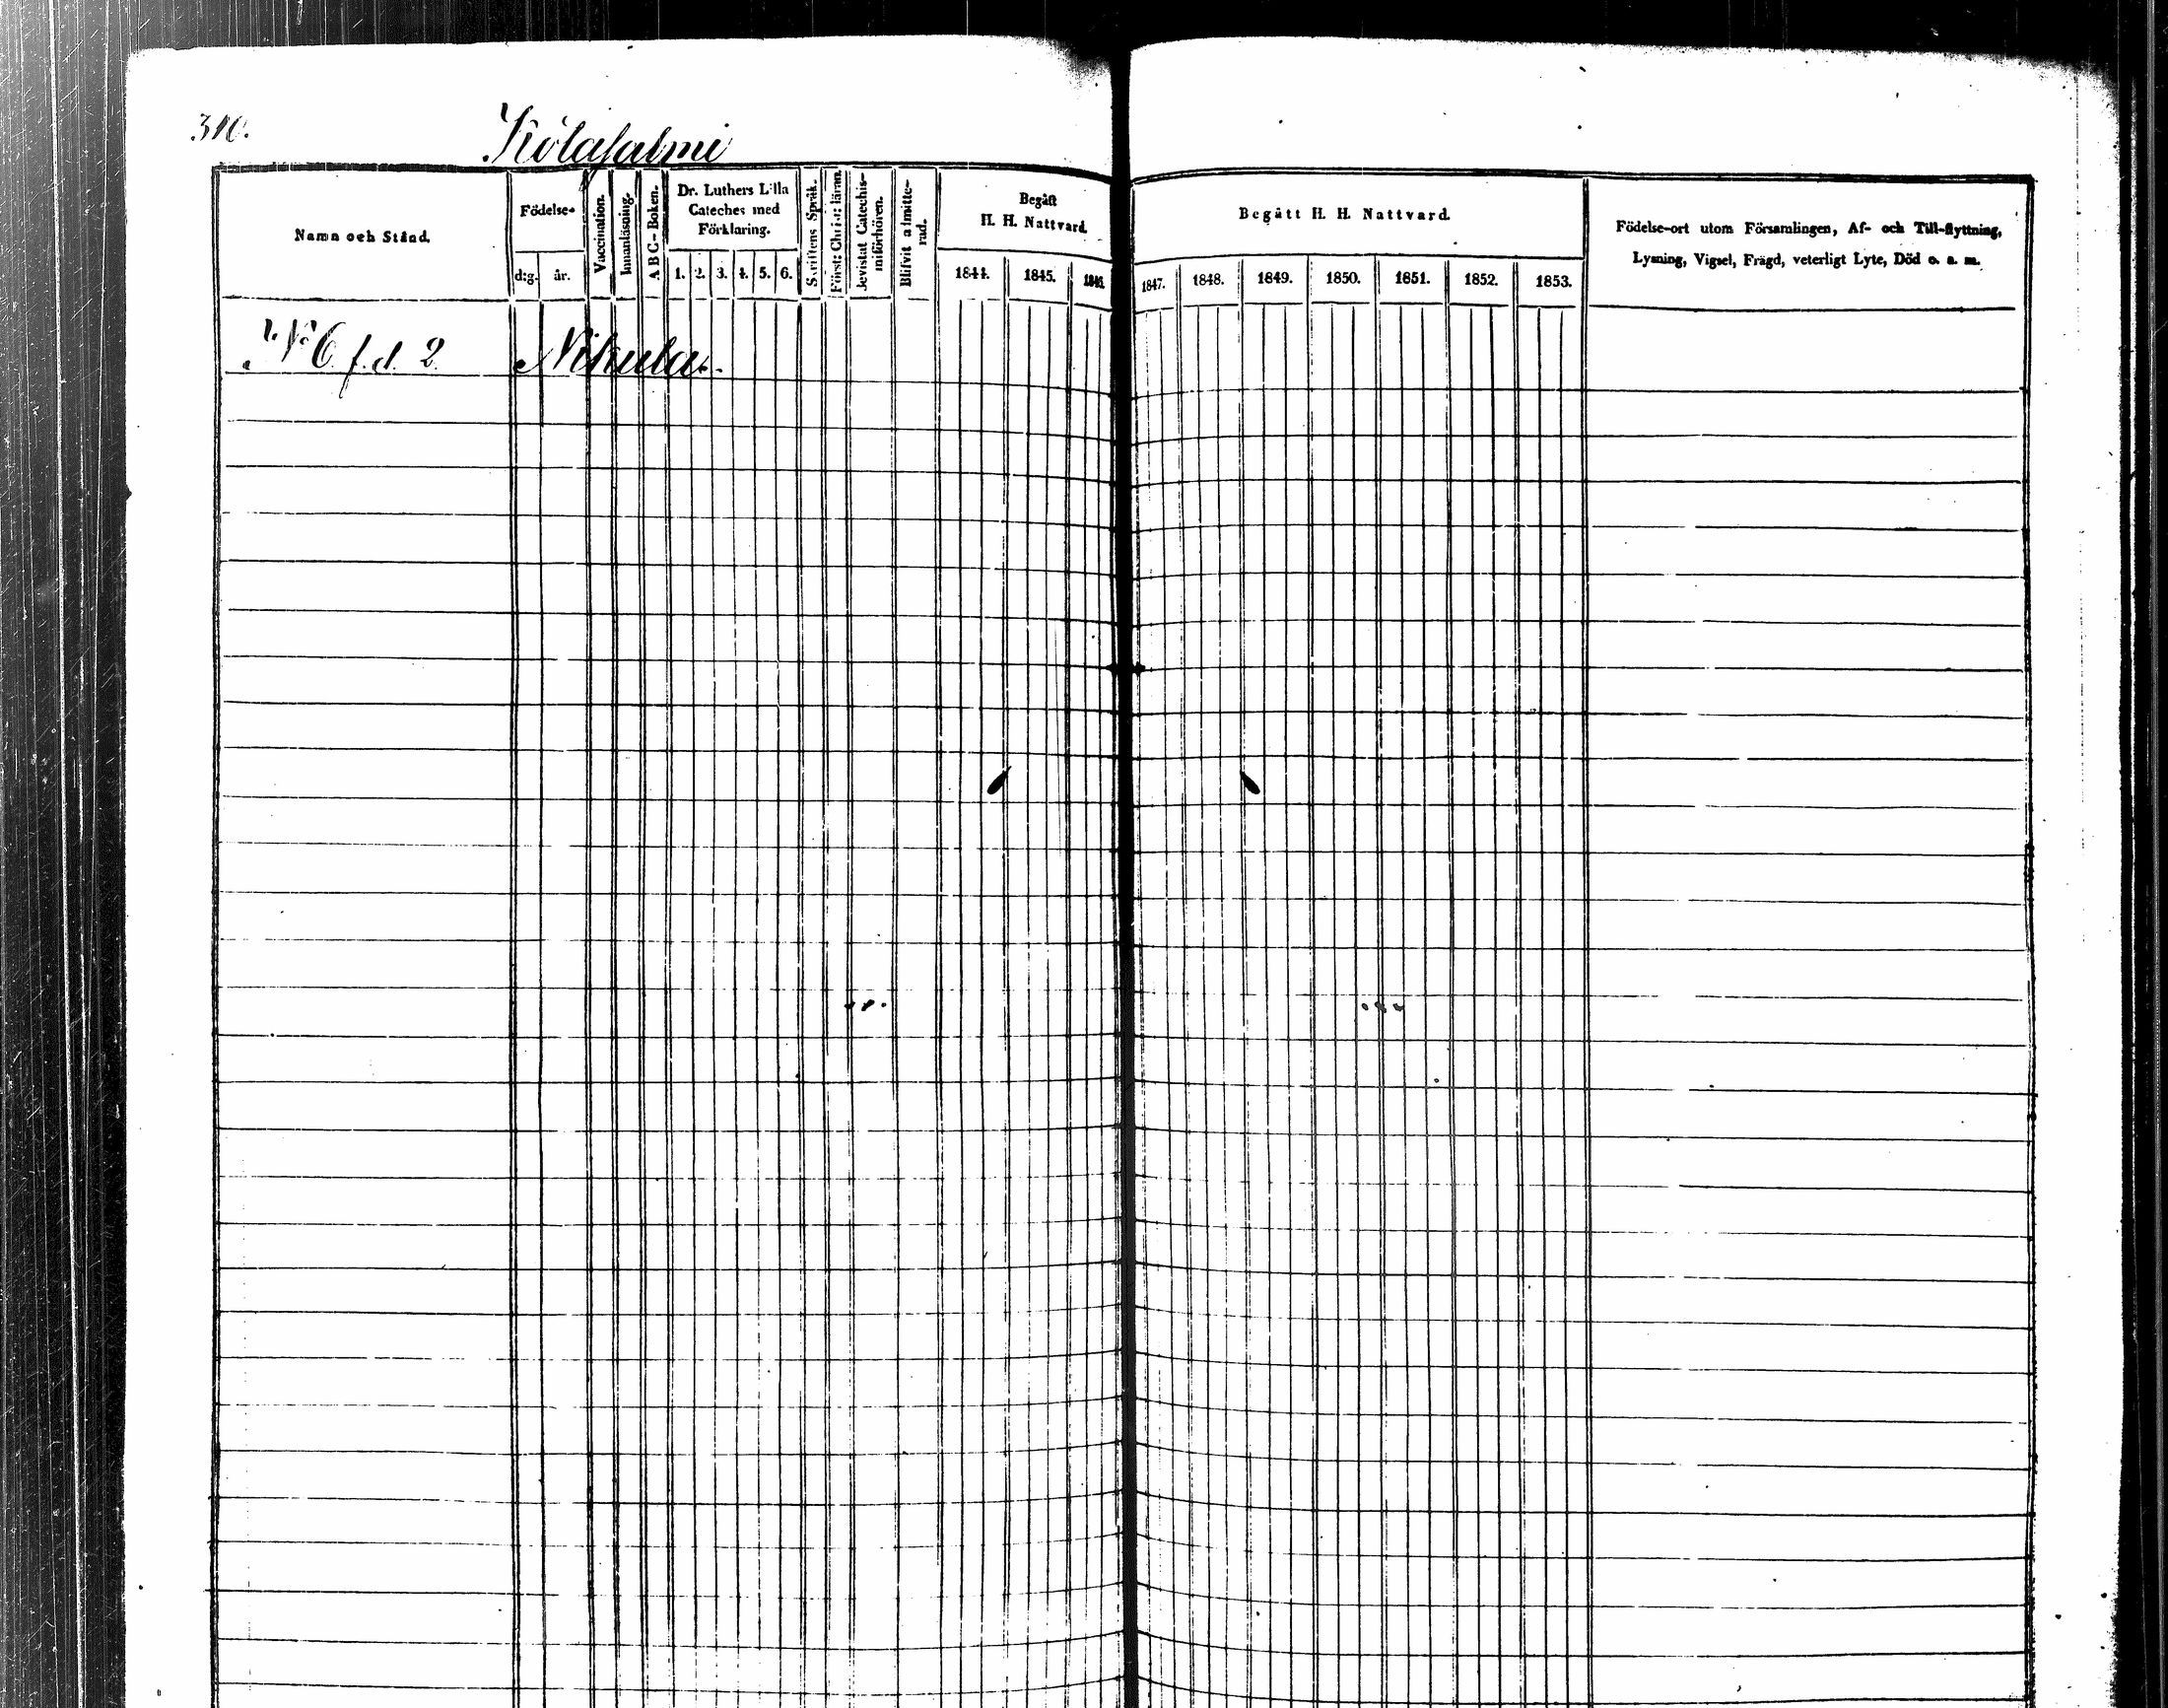 310.
Kölasalmi
Namn och Stånd.
Födelse-
d:g. år.
Vaccination.
Innanläsning.
A B C-Boken.
Dr. Luthers Lilla
Cateches med
Förklaring.
1. 2. 3. 4. 5. 6.
Skriftens Språk.
Först: Christ: läran.
Bevistat Catechis-
miförhören.
Blifvit admitte-
rad.
Begått
H. H. Nattvard.
1844. 1845. 1846.
Begått H. H. Nattvard.
1847. 1848. 1849. 1850. 1851. 1852. 1853.
Födelse-ort utom Församlingen, Af- och Till-flyttning,
Lysning, Vigsel, Frägd, veterligt Lyte, Död o. s. m.
N:o 6 f. d. 2. Nikula.